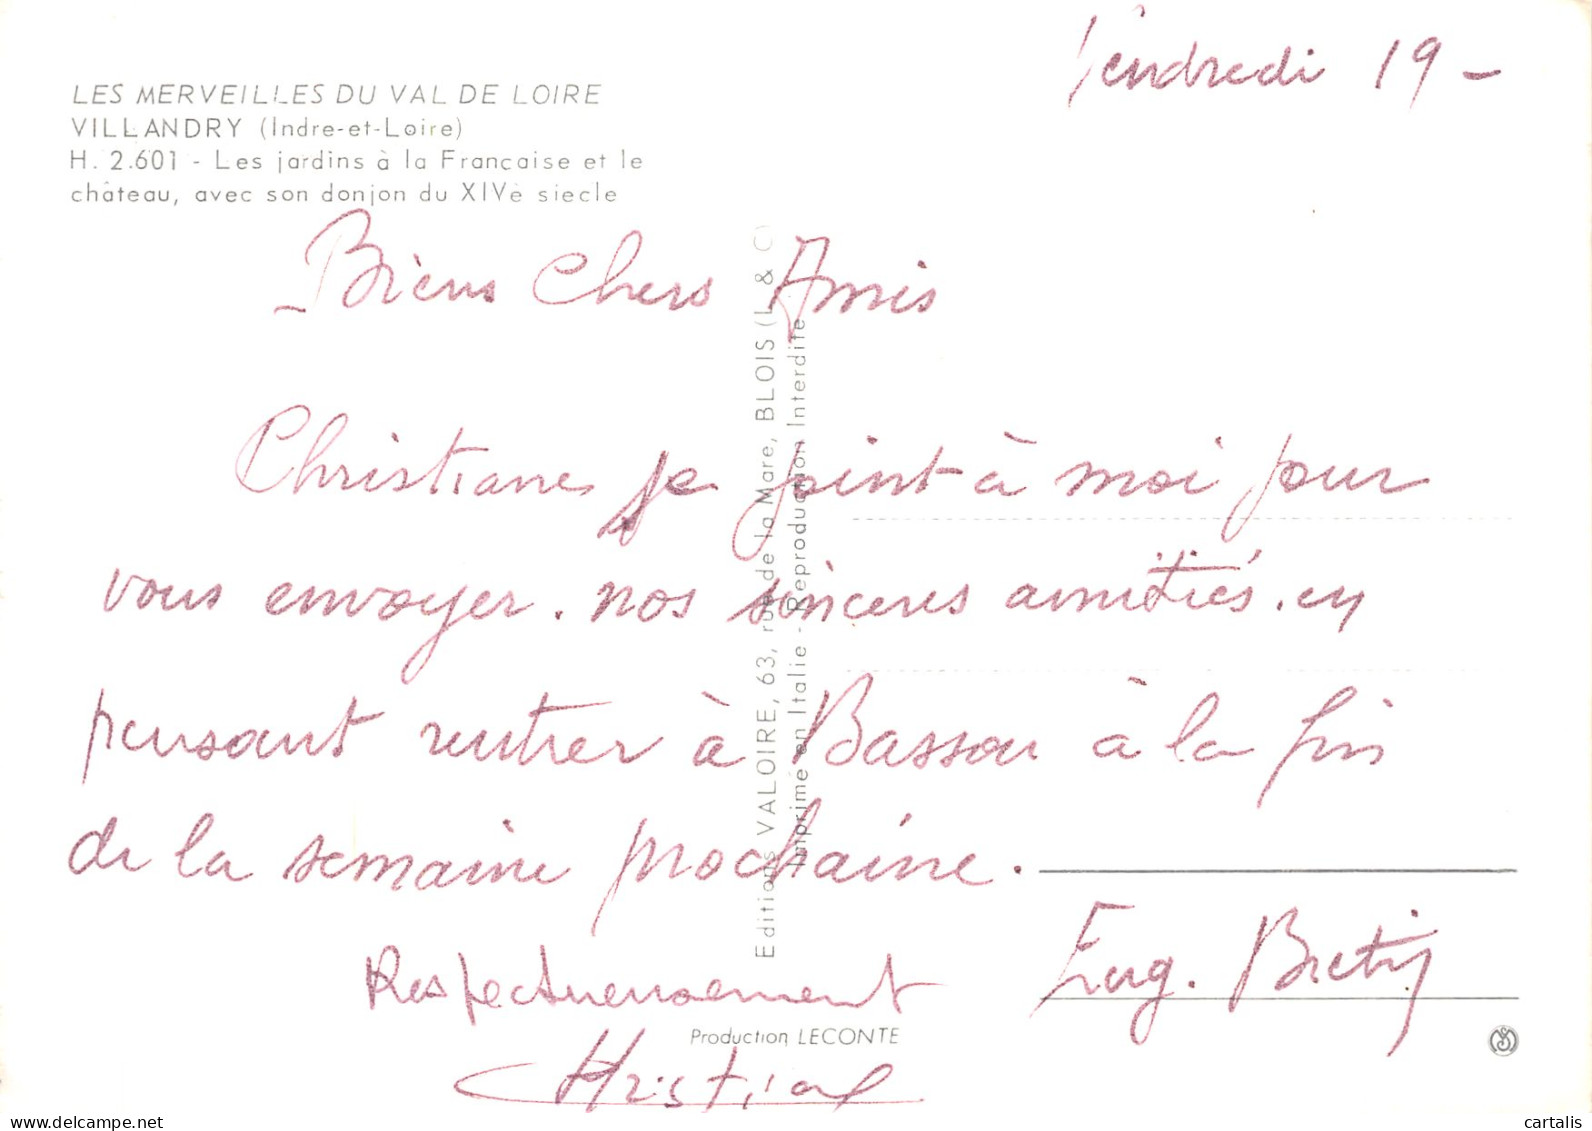 Vendredi 19 -
LES MERVEILLES DU VAL DE LOIRE
VILLANDRY (Indre-et-Loire)
H. 2.601 - Les jardins à la Française et le
château, avec son donjon du XIVè siecle
Biens Chers Amis
Christiane se joint à moi pour
vous envoyer. nos sincères amitiés. en
pensant rentrer à Bassou à la fin
de la semaine prochaine.
Eug.
Respectueusement
Editions VALOIRE, 63, rue de la Mare, BLOIS (L & C)
Imprimé en Italie - Reproduction Interdite
Production LECONTE
delcampe.net
cartalis